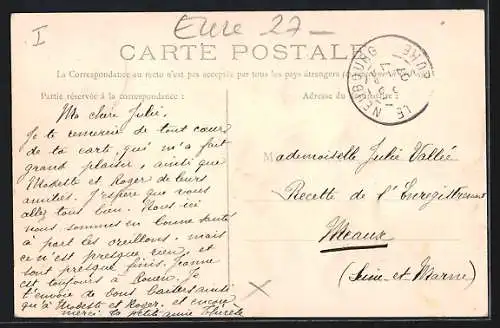 I
Eure 27
CARTE POSTALE
La Correspondance au recto n'est pas acceptée par tous les pays étrangers
Partie réservée à la correspondance :
Adresse du
LE NEUBOURG
EURE
Ma chère Julie.
Je te remercie de tout cœur
de ta carte qui m'a fait
grand plaisir, ainsi que
Modeste et Roger de leurs
amities. J'espère que vous
allez tous bien. Nous ici
nous sommes en bonne santé
à part les oreillons. mais
ce n'est presque rien, et
sont presque finis. Jeanne
est toujours à Rouen. Je
t'envoie de bons baisers ainsi
qu'à Modeste et Roger. et encore
merci ta petite amie
Mademoiselle Julie Vallée
Recette de l'Enregistrement
Meaux
(Seine-et-Marne)